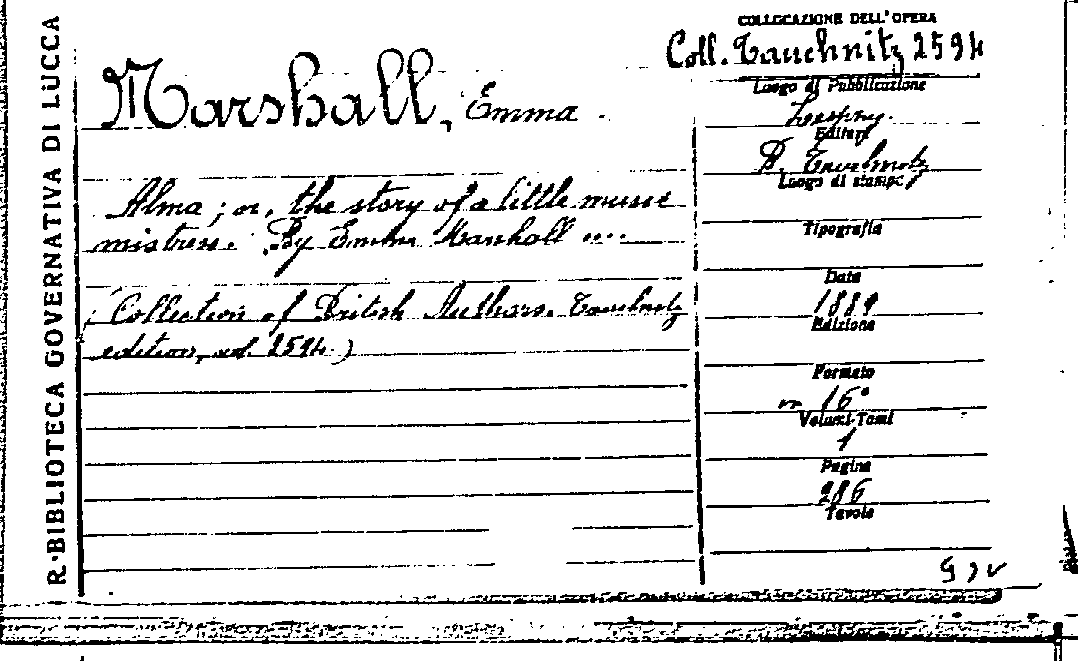 R. BIBLIOTECA GOVERNATIVA DI LUCCA
Marshall, Emma.
Alma; or, the story of a little music
mistress. By Emma Marshall ....
(Collection of British Authors. Tauchnitz
edition, vol. 2594.)
COLLOCAZIONE DELL'OPERA
Coll. Tauchnitz 2594
Luogo di Pubblicazione
Leipzig.
Editore
B. Tauchnitz
Luogo di stampa
Tipografia
Data
1889
Edizione
Formato
in 16°
Volumi-Tomi
1
Pagine
286
Tavole